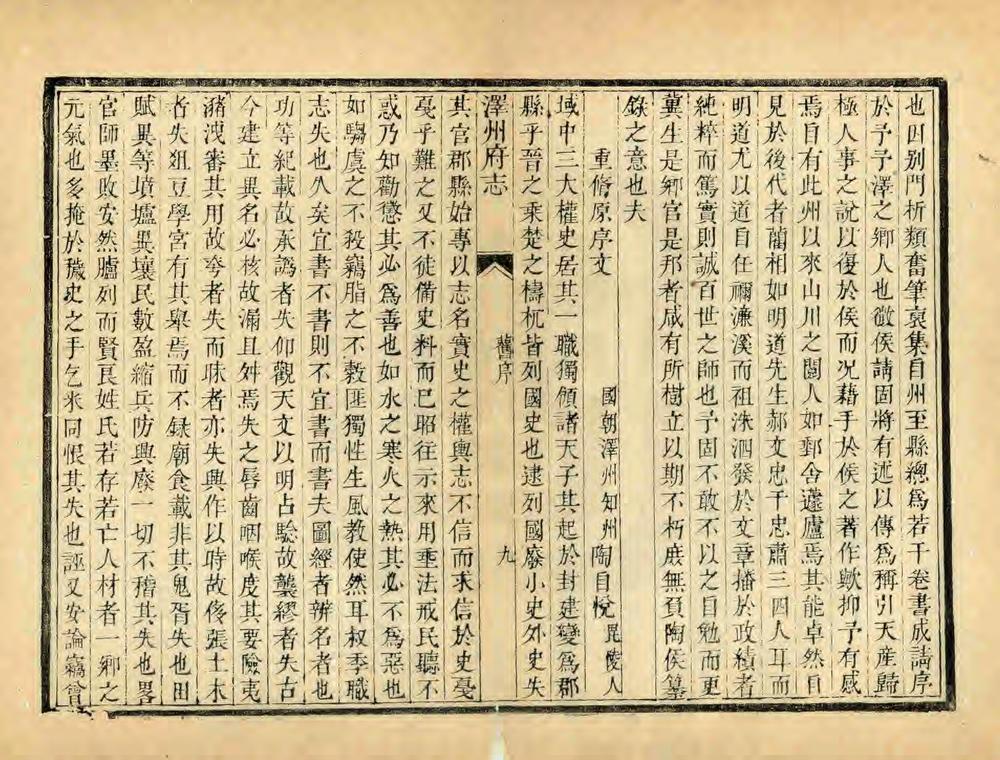 也因別門析類奮筆裒集自州至縣總爲若干卷書成請序
於予予澤之鄉人也徵侯請固將有述以傳爲稱引天產歸
極人事之說以復於侯而況藉手於侯之著作歟抑予有感
焉自有此州以來山川之閱人如郵舍蘧廬焉其能卓然自
見於後代者藺相如明道先生郝文忠于忠肅三四人耳而
明道尤以道自任禰濂溪而祖洙泗發於文章播於政績者
純粹而篤實則誠百世之師也予固不敢不以之自勉而更
冀生是鄉官是邦者咸有所樹立以期不朽庶無負陶侯纂
錄之意也夫
重脩原序文 國朝澤州知州陶自悅毘陵人
域中三大權史居其一職獨領諸天子其起於封建變爲郡
縣乎晉之乘楚之檮杌皆列國史也逮列國廢小史外史失
澤州府志 舊序 九
其官郡縣始專以志名實史之權輿志不信而求信於史戞
戞乎難之又不徒備史料而已昭往示來用垂法戒民聽不
惑乃知勸懲其必爲善也如水之寒火之熱其必不爲惡也
如騶虞之不殺竊脂之不穀匪獨性生風教使然耳故季職
志失也久矣宜書不書則不宜書而書夫圖經者辨名者也
功等紀載故承譌者失仰觀天文以明占驗故襲繆者失古
今建立異名必核故漏且舛焉失之唇齒咽喉度其要險夷
瀦洩審其用故夸者失而昧者亦失興作以時故侈張土木
者失俎豆學宮有其舉焉而不録廟食載非其鬼胥失也田
賦異等墳壚異壤民數盈縮兵防興廢一切不稽其失也畧
官師墨敗安然臚列而賢良姓氏若存若亡人材者一鄉之
元氣也多掩於穢史之手乞米同恨其失也誣又安論竊會